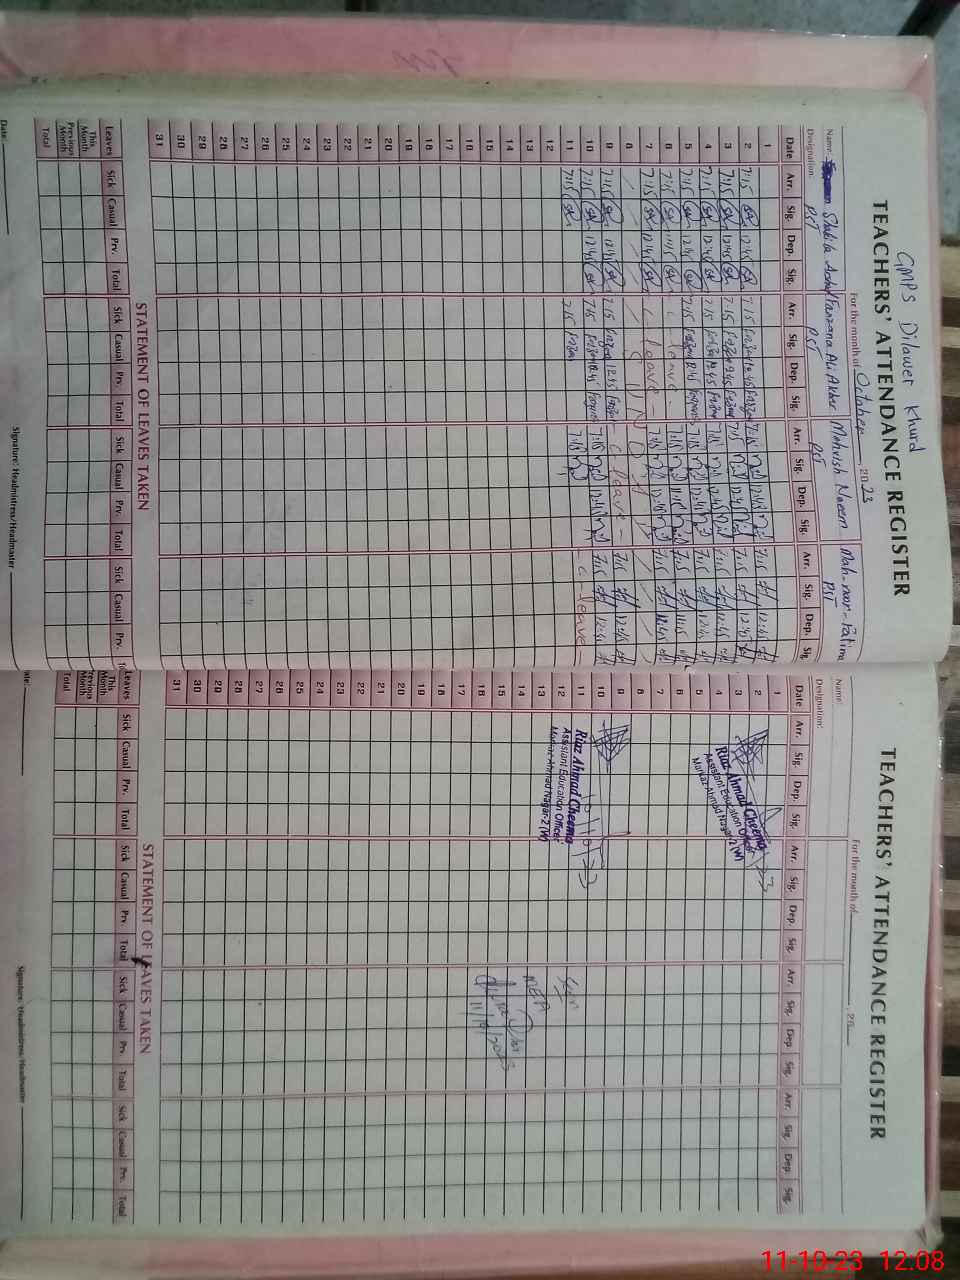 GMPS Dilawer Khurd
TEACHERS' ATTENDANCE REGISTER
For the month of October 2023
Name: Shakila Farzana Ali Akbar Mahvish Naeem Mah-noor-Fatima
Designation: PST PST PST PST
Date Arr. Sig. Dep. Sig. Arr. Sig. Dep. Sig. Arr. Sig. Dep. Sig. Arr. Sig. Dep. Sig
1
2 7:15 12:45 7:15 12:45 7:15 12:45 7:15 12:45
3 7:15 12:45 7:15 12:45 7:15 12:45 7:15 12:45
4 7:15 12:45 7:15 12:45 7:15 12:45 7:15 12:45
5 7:15 12:45 7:15 12:45 7:15 12:45 7:15 12:45
6 7:15 11:15 c leave 7:15 11:15 7:15 11:15
7 7:15 12:45 c leave 7:15 12:45 7:15 12:45
8 S U N D A Y
9 7:15 12:45 7:15 12:45 c leave 7:15 12:45
10 7:15 12:45 7:15 12:45 7:15 12:45 7:15 12:45
11 7:15 7:15 7:15 c leave
12
13
14
15
16
17
18
19
20
21
22
23
24
25
26
27
28
29
30
31
STATEMENT OF LEAVES TAKEN
Leaves Sick Casual Prv. Total Sick Casual Prv. Total Sick Casual Prv. Total Sick Casual Prv.
This Month
Previous Month
Total
Date:
Signature: Headmistress/Headmaster
TEACHERS' ATTENDANCE REGISTER
For the month of 20
Name:
Designation:
Date Arr. Sig. Dep. Sig. Arr. Sig. Dep. Sig. Arr. Sig. Dep. Sig. Arr. Sig. Dep. Sig.
1
2
3
4
5
6
7
8
9
10
11
12
13
14
15
16
17
18
19
20
21
22
23
24
25
26
27
28
29
30
31
Riaz Ahmad Cheema
Assistant Education Officer
Markaz-Ahmad Nagar-2 (W)
Riaz Ahmad Cheema
Assistant Education Officer
Markaz-Ahmad Nagar-2 (W)
Seen
MEA
11/10/2023
STATEMENT OF LEAVES TAKEN
Leaves Sick Casual Prv. Total Sick Casual Prv. Total Sick Casual Prv. Total Sick Casual Prv. Total
This Month
Previous Month
Total
Signature: Headmistress/Headmaster
11-10-23 12:08